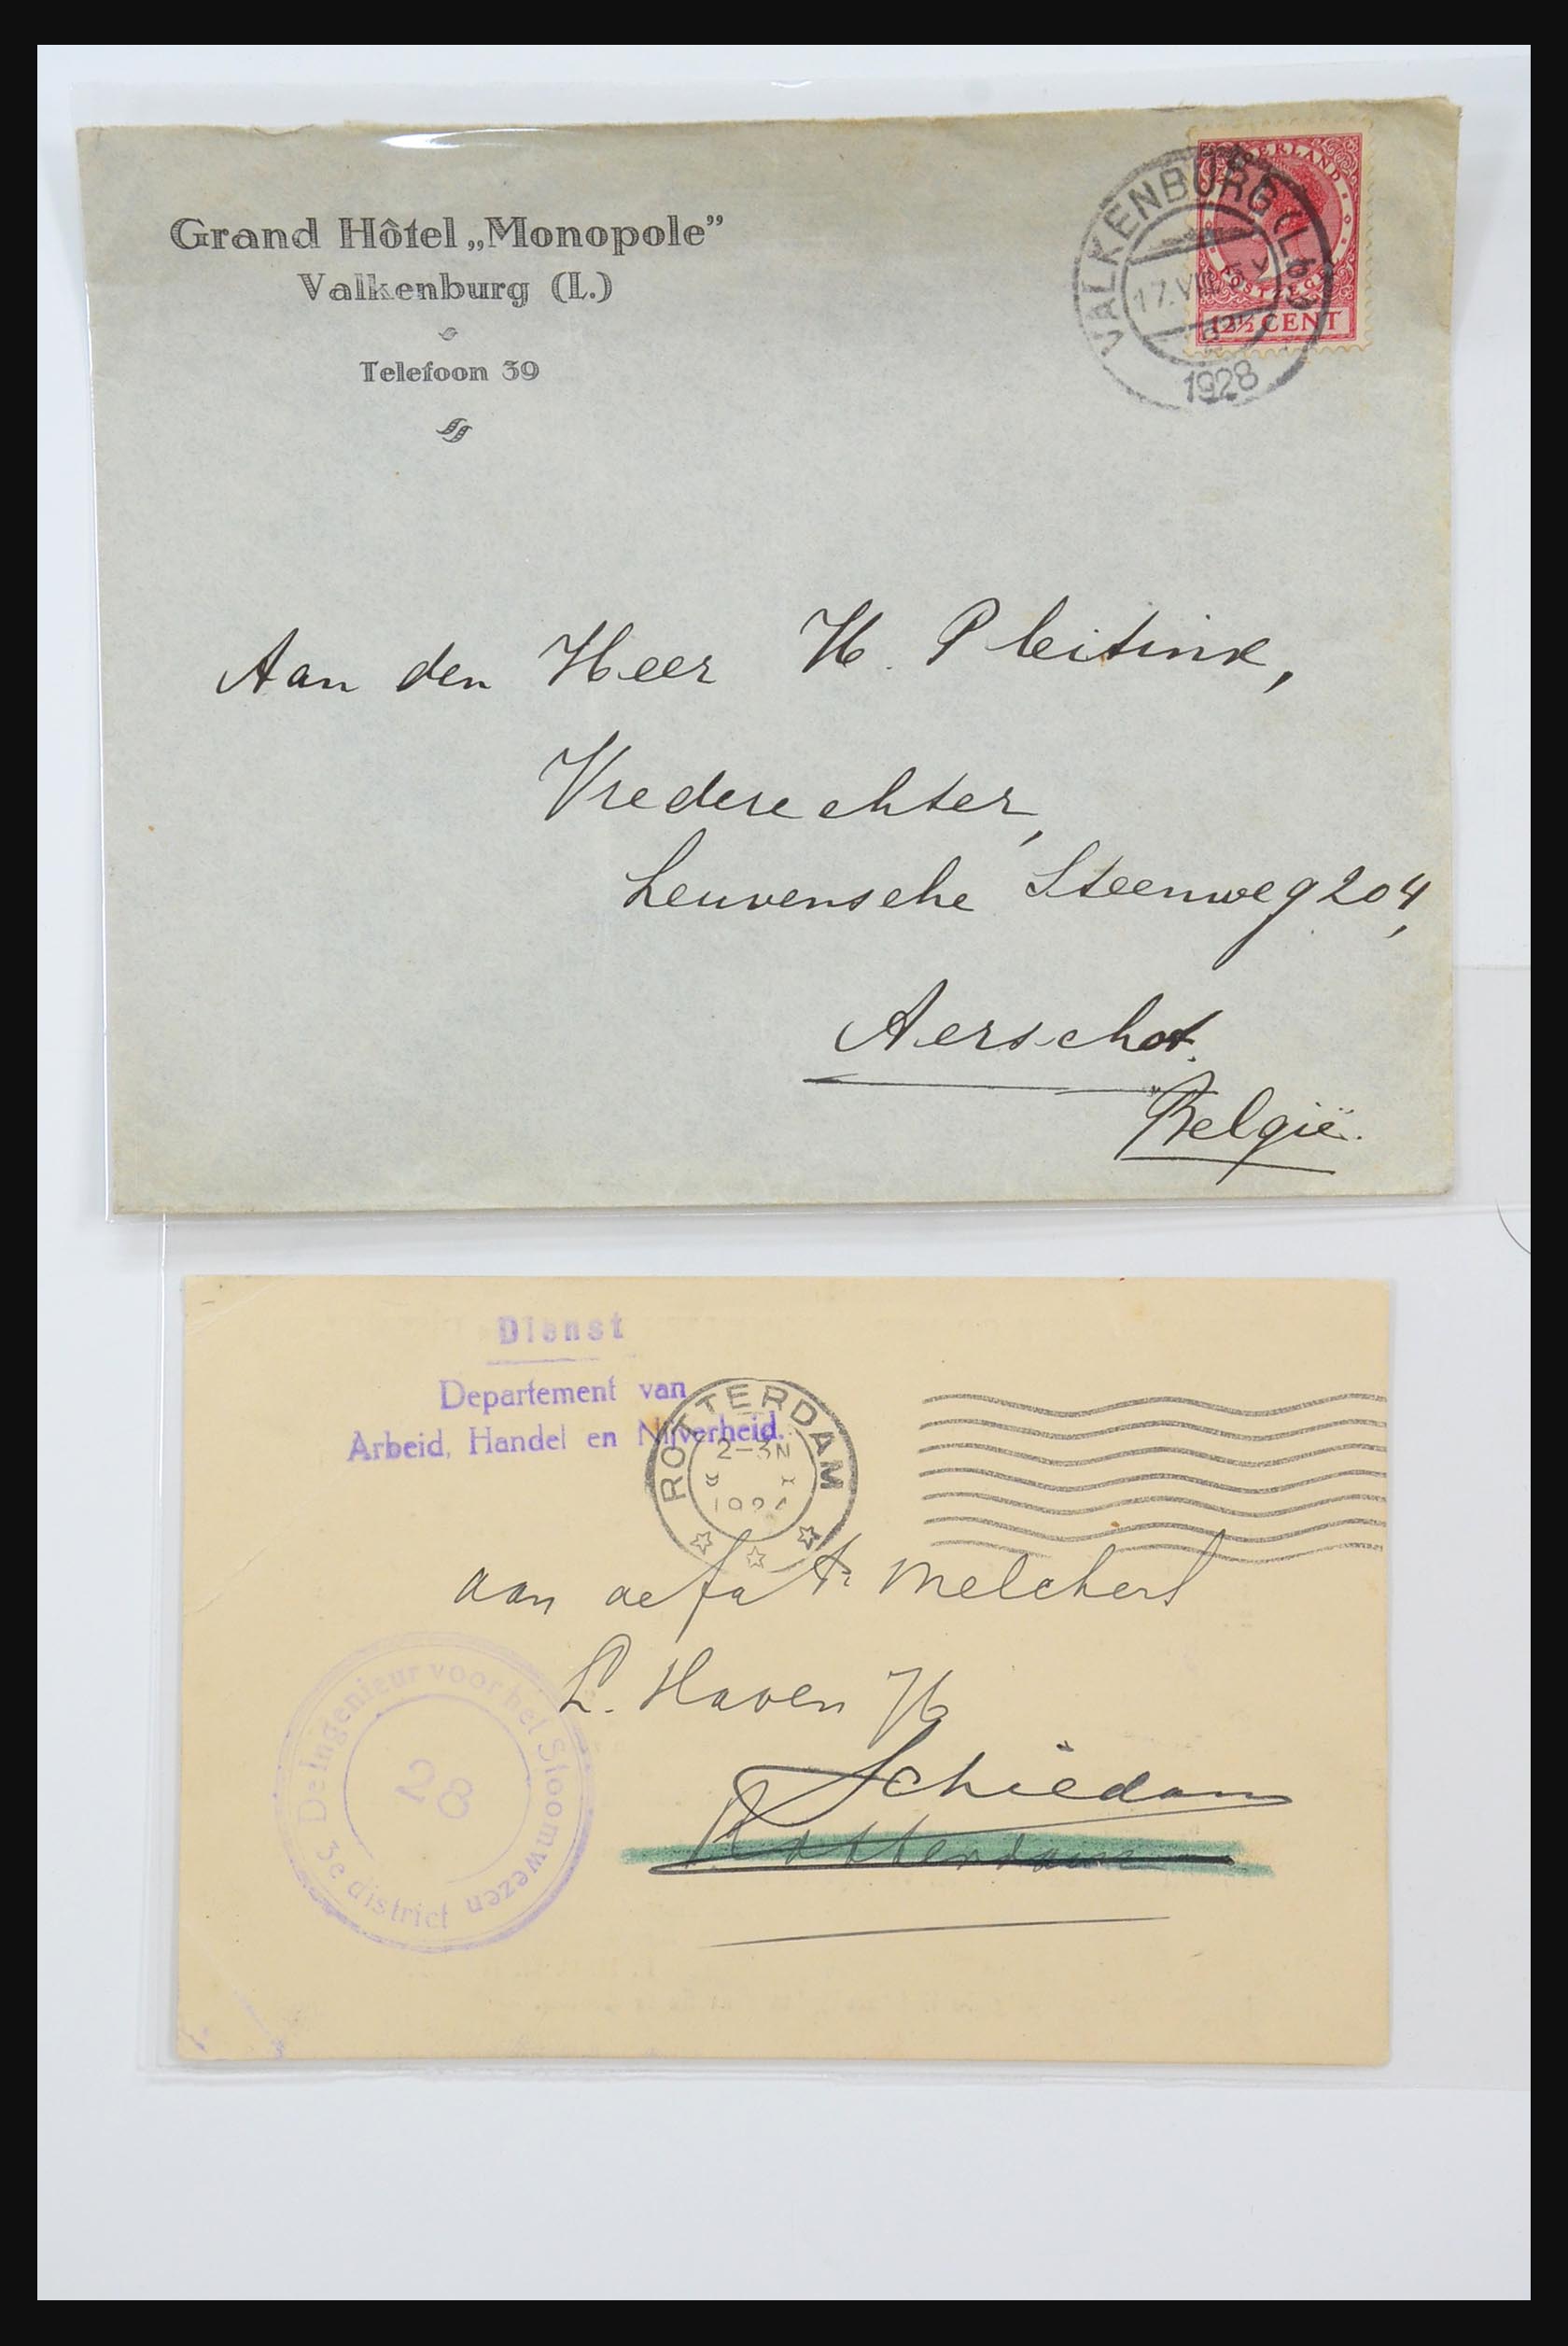 Grand Hôtel „Monopole”
Valkenburg (L.)
Telefoon 39
NEDERLAND
POSTZEGEL
12½ CENT
VALKENBURG (Lb)
17.VIII.
1928
Aan den Heer H. Pleitinx,
Vrederechter,
Leuvensche Steenweg 204,
Aerschot.
België.
Dienst
Departement van
Arbeid, Handel en Nijverheid.
ROTTERDAM
2-3N
192
aan de fa Melchers
L. Haven
Schiedam
Rotterdam
De Ingenieur voor het Stoomwezen
3e district
28